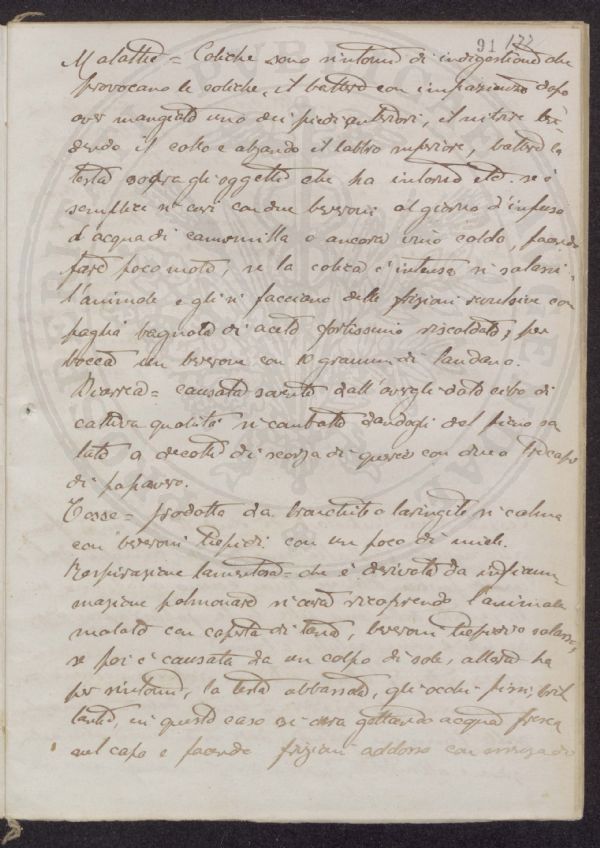 91 172
Malattie = Coliche sono sintomi di indigestione che
provocano le coliche, il battere con impazienza dopo
aver mangiato uno dei piedi anteriori, il nitrire ste-
dendo il collo e alzando il labbro superiore, battere la
testa sopra gli oggetti che ha intorno etc. se è
semplice si curi con due beveroni al giorno d'infuso
d'acqua di camomilla o ancora vino caldo, facendo
fare poco moto, se la colica è intensa si salassi
l'animale e gli si facciano delle frizioni revulsive con
paglia bagnata di aceto fortissimo riscaldato, per
bocca un beverone con 10 grammi di laudano.
Diarrea = causata sovente dall'avergli dato cibo di
cattiva qualità si combatte dandogli del fieno sa-
lato o decotti di scorza di quercia con due o tre capi
di papavero.
Tosse = prodotta da bronchite o laringite si calma
con beveroni tiepidi con un poco di miele.
Respirazione lamentosa = che è derivata da infiam-
mazione polmonare si cura ricoprendo l'animale
malato con coperta di lana, beveroni tiepidi o salassi,
se poi è causata da un colpo di sole, allora ha
per sintomi, la testa abbassata, gli occhi fissi, bril-
lanti, in questo caso si cura gettando acqua fresca
sul capo e facendo frizioni addosso con